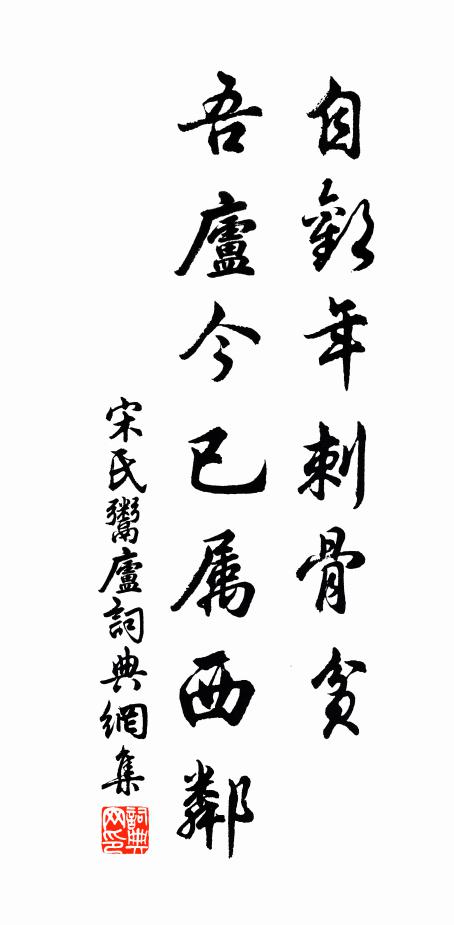 自歎年刺骨貧
吾廬今已属西鄰
宋民鬻廬詞典網集
詞典网印